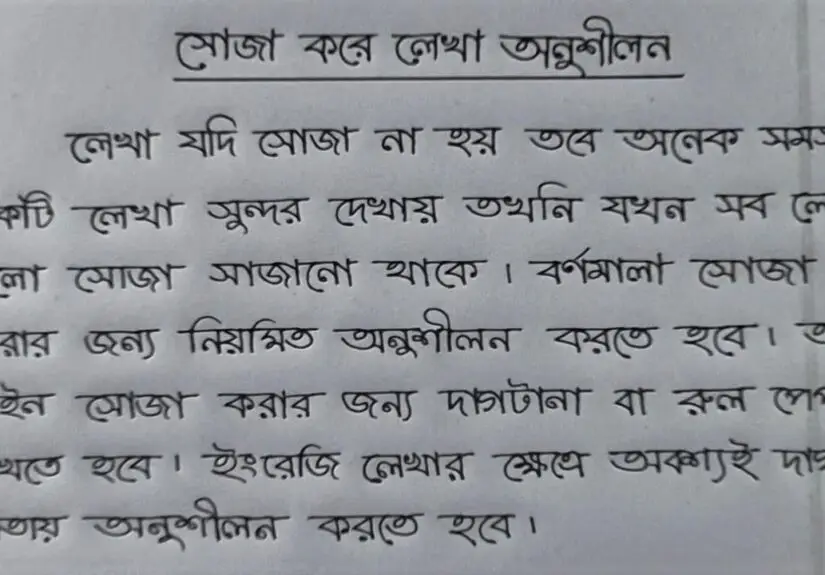 সোজা করে লেখা অনুশীলন
লেখা যদি সোজা না হয় তবে অনেক
লেখা সুন্দর দেখায় তখনি যখন সব
সোজা সাজানো থাকে। বর্ণমালা সোজা
জন্য নিয়মিত অনুশীলন করতে হবে।
সোজা করার জন্য দাগটানা বা রুল
হবে। ইংরেজি লেখার ক্ষেত্রে অবশ্যই
অনুশীলন করতে হবে।